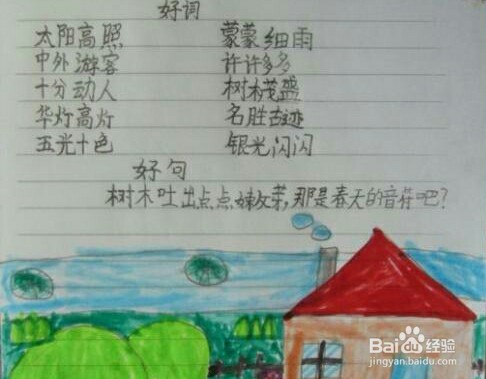 好词
太阳高照 蒙蒙细雨
中外游客 许许多多
十分动人 树木茂盛
华灯高灯 名胜古迹
五光十色 银光闪闪
好句
树木吐出点点嫩芽,那是春天的音符吧?
Baidu 经验
jingyan.baidu.com